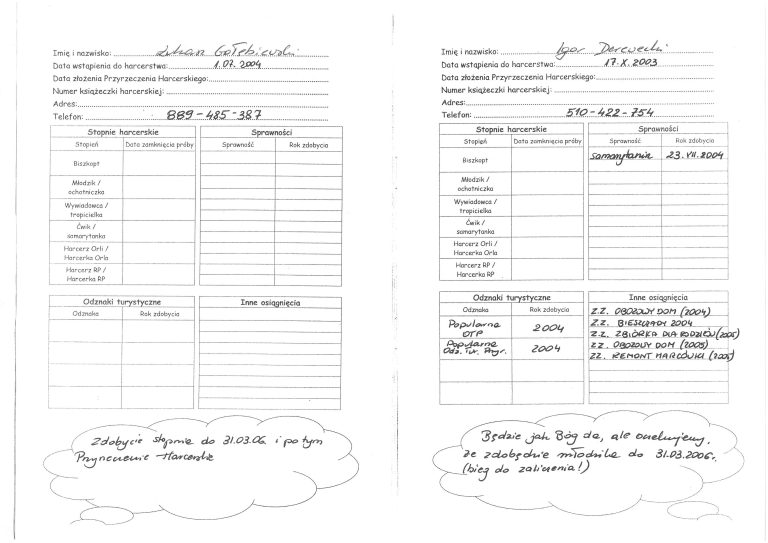 Imię i nazwisko: Łukasz Gołębiewski
Data wstąpienia do harcerstwa: 1.07.2004
Data złożenia Przyrzeczenia Harcerskiego:
Numer książeczki harcerskiej:
Adres:
Telefon: 889-485-387
Stopnie harcerskie
Sprawności
Stopień
Data zamknięcia próby
Sprawność
Rok zdobycia
Biszkopt
Młodzik /
ochotniczka
Wywiadowca /
tropicielka
Ćwik /
samarytanka
Harcerz Orli /
Harcerka Orla
Harcerz RP /
Harcerka RP
Odznaki turystyczne
Inne osiągnięcia
Odznaka
Rok zdobycia
Zdobycie stopnia do 31.03.06 i po tym
Przyrzeczenie Harcerskie
Imię i nazwisko: Igor
Data wstąpienia do harcerstwa: 17.X.2003
Data złożenia Przyrzeczenia Harcerskiego:
Numer książeczki harcerskiej:
Adres:
Telefon: 510-422-754
Stopnie harcerskie
Sprawności
Stopień
Data zamknięcia próby
Sprawność
Rok zdobycia
Biszkopt
samarytanin
23.VII.2004
Młodzik /
ochotniczka
Wywiadowca /
tropicielka
Ćwik /
samarytanka
Harcerz Orli /
Harcerka Orla
Harcerz RP /
Harcerka RP
Odznaki turystyczne
Inne osiągnięcia
Odznaka
Rok zdobycia
Popularna
OTP
2004
Popularna
Odz. Tur. Przyr.
2004
Z.Z. OBOZOWY DOM (2004)
Z.Z. BIESZCZADY 2004
Z.Z. ZBIÓRKA DLA RODZICÓW (2005)
ZZ. OBOZOWY DOM (2005)
ZZ. REMONT HARCÓWKI (2005)
Będzie jak Bóg da, ale oczekujemy,
że zdobędzie młodzika do 31.03.2006.
(bieg do zaliczenia!)